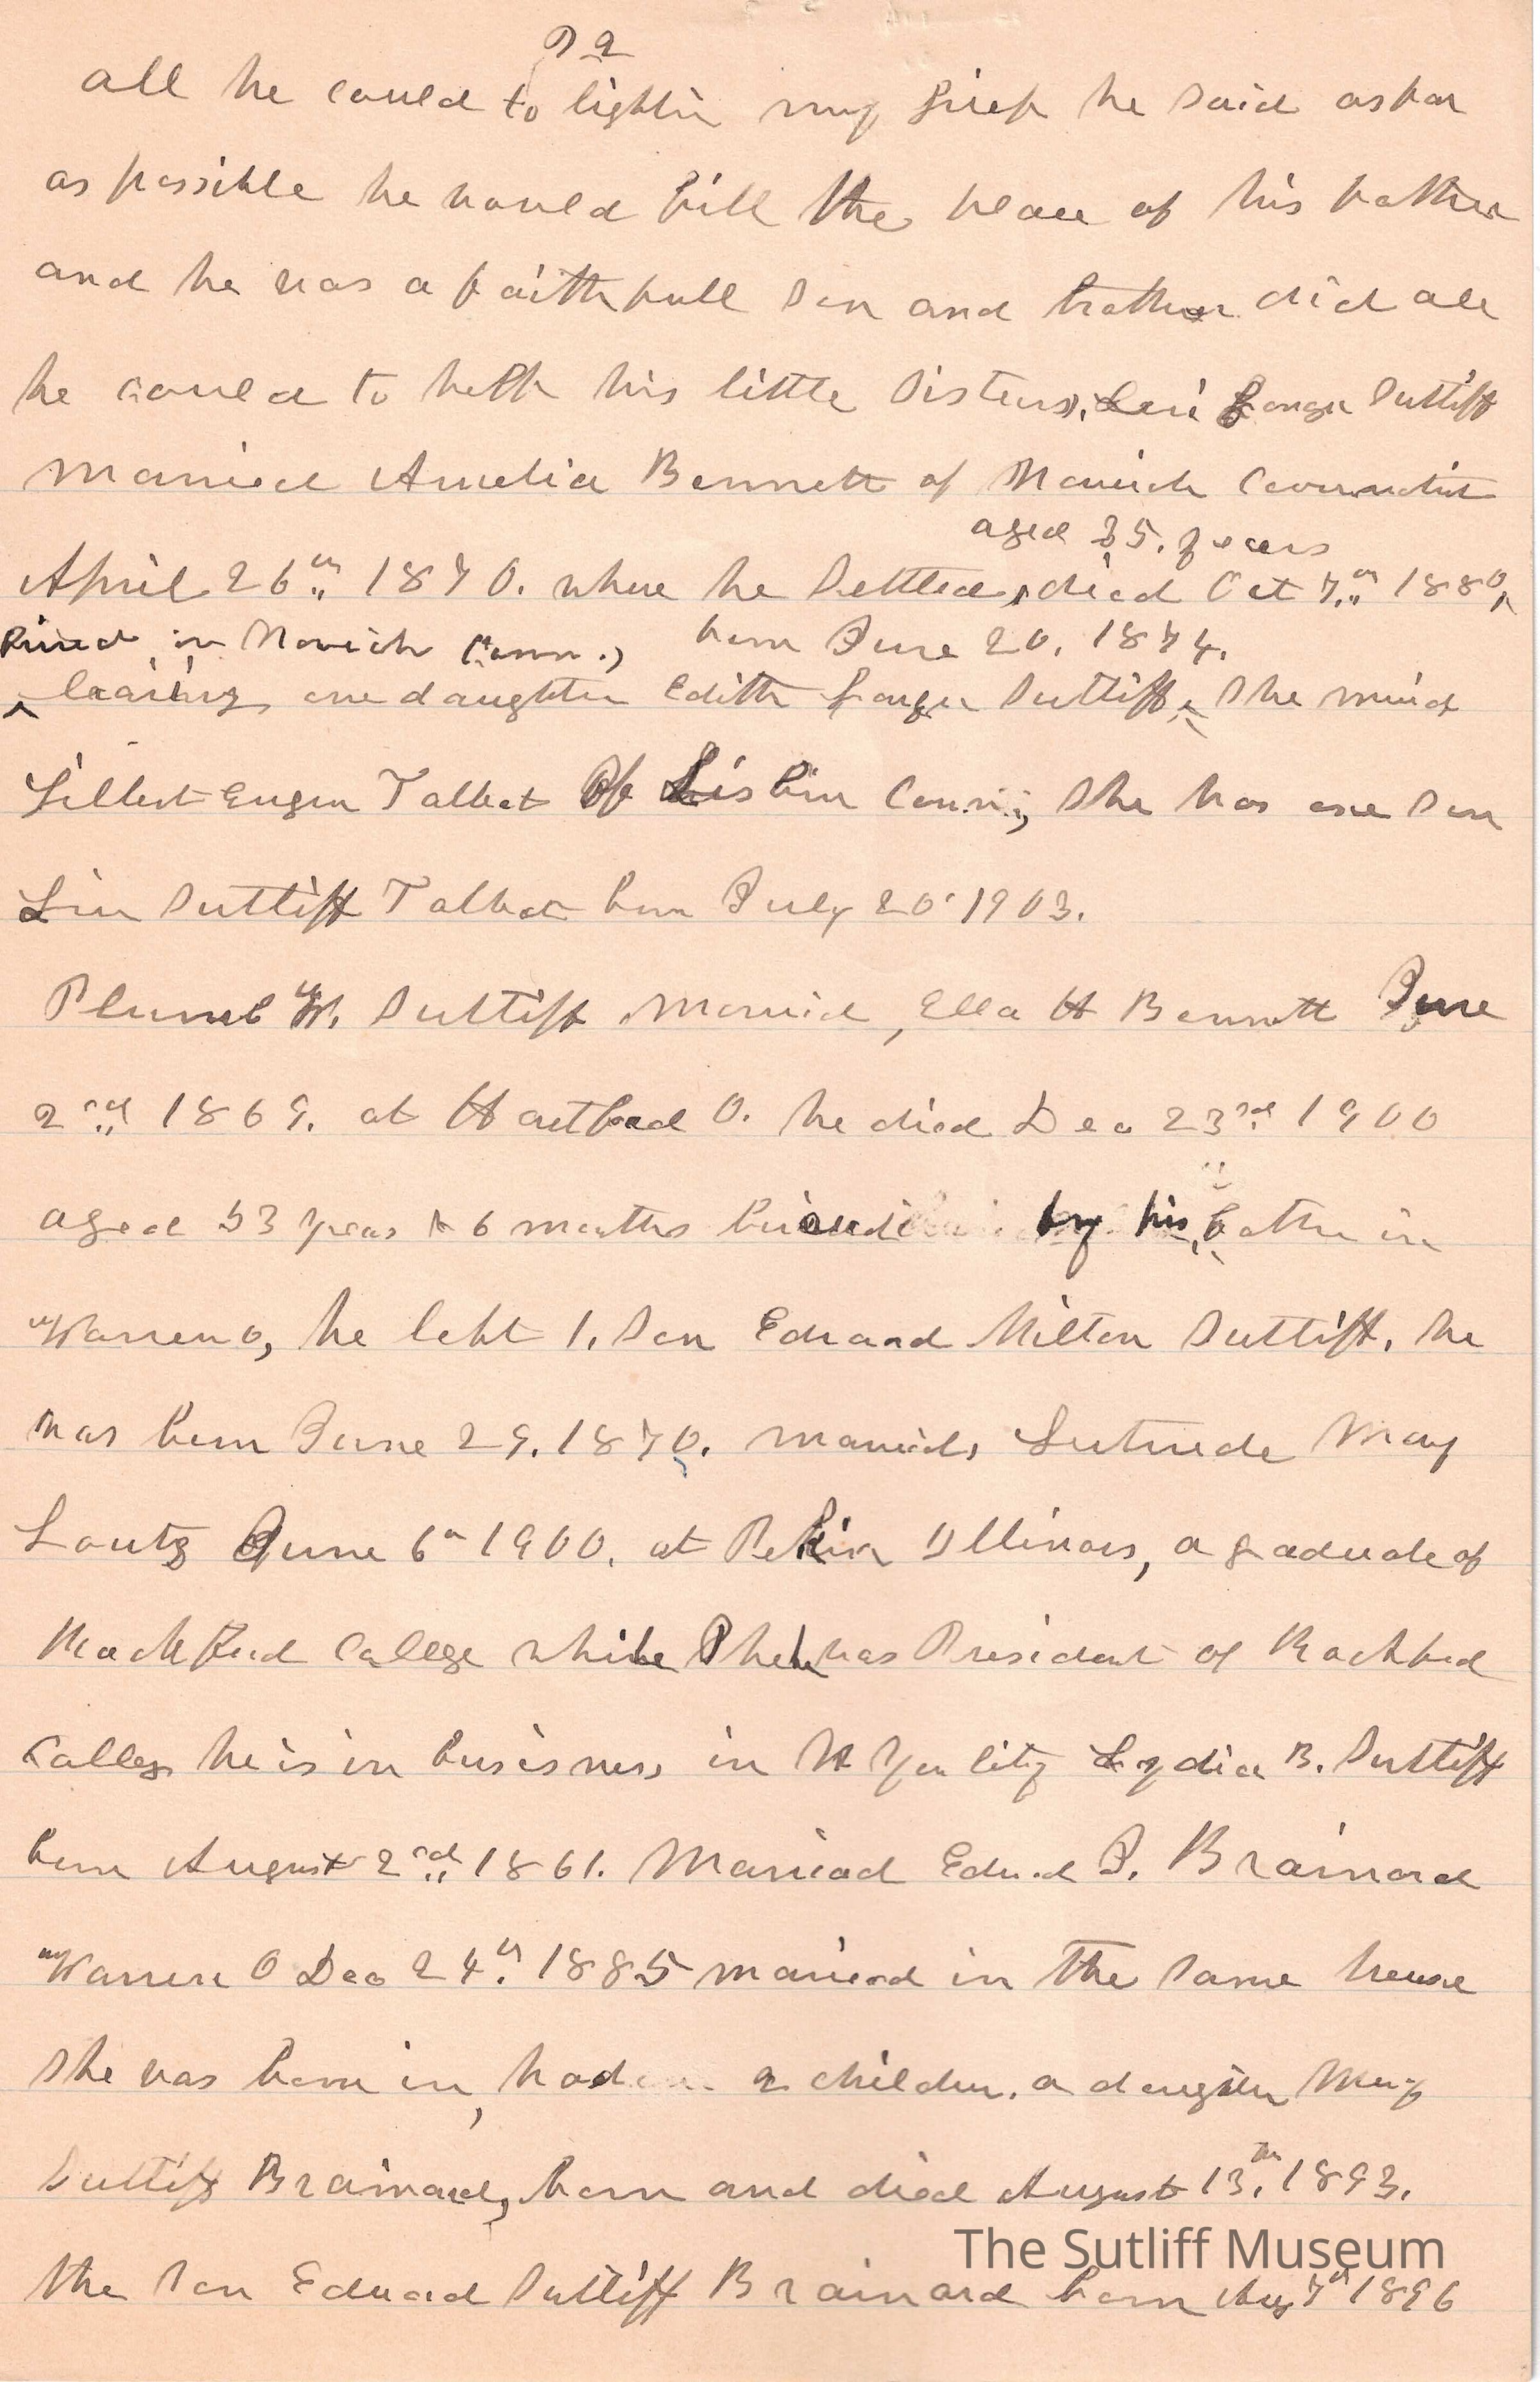 P 2
all he could to lightin my grief he said as far
as possible he would fill the place of his father
and he was a faithfull son and brother did all
he could to help his little sisters. Levi Sutliff
married Amelia Bennett of Norwich Connecticut
aged 35. years
April 26th 1870. where he settled, died Oct 7th 1880,
buried in Norwich Conn.) born June 20. 1874.
leaving one daughter Edith Sutliff, she married
Gilbert Eugen Talbot of Lisbin Conn; she has one son
Sutliff Talbot born July 20 1903.
Plumb W. Sutliff married, Ella H Bennett June
2nd 1869. at Hartford O. he died Dec 23rd 1900
aged 53 years & 6 months buried by his father in
Warren O, he left 1. son Edward Milton Sutliff. he
was born June 29. 1870. married, Gertrude May
Lautz June 6th 1900. at Pekin Illinois, a graduate of
Rockford College while Pheb was President of Rockford
College he is in buisness in N York City Lydia B. Sutliff
born August 2nd 1861. Married Edward J. Brainard
Warren O Dec 24th 1885 married in the same house
she was born in, had 2 children. a daughter Mary
Sutliff Brainard, born and died August 13th 1893.
the son Edward Sutliff Brainard born Aug 7th 1896
The Sutliff Museum